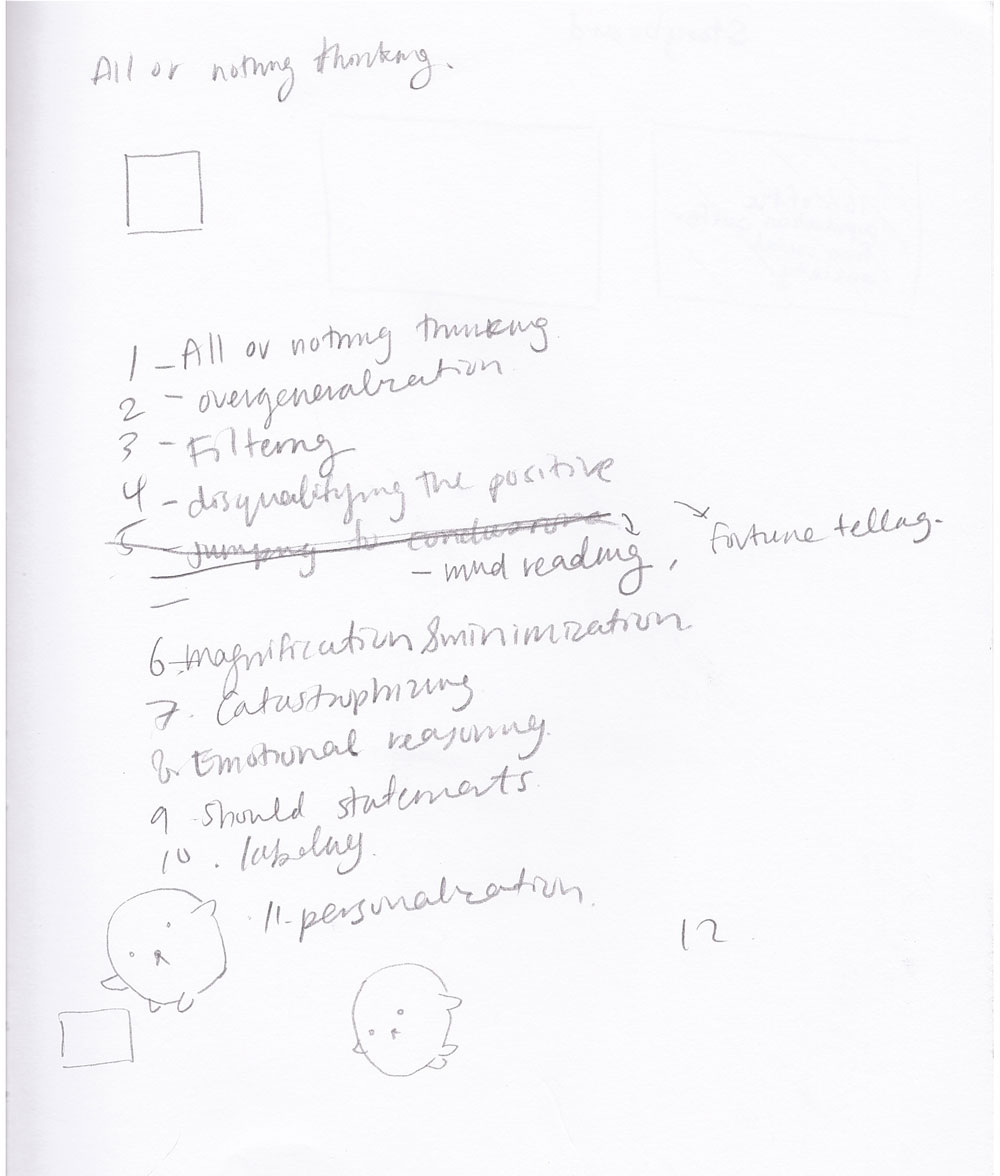 All or nothing thinking.
1 - All or nothing thinking
2 - overgeneralization
3 - Filtering
4 - disqualifying the positive
5 jumping to conclusions
- mind reading, fortune telling.
6 - magnification & minimization
7. Catastrophizing
8. Emotional reasoning.
9 - Should statements
10. labeling.
11 - personalization.
12